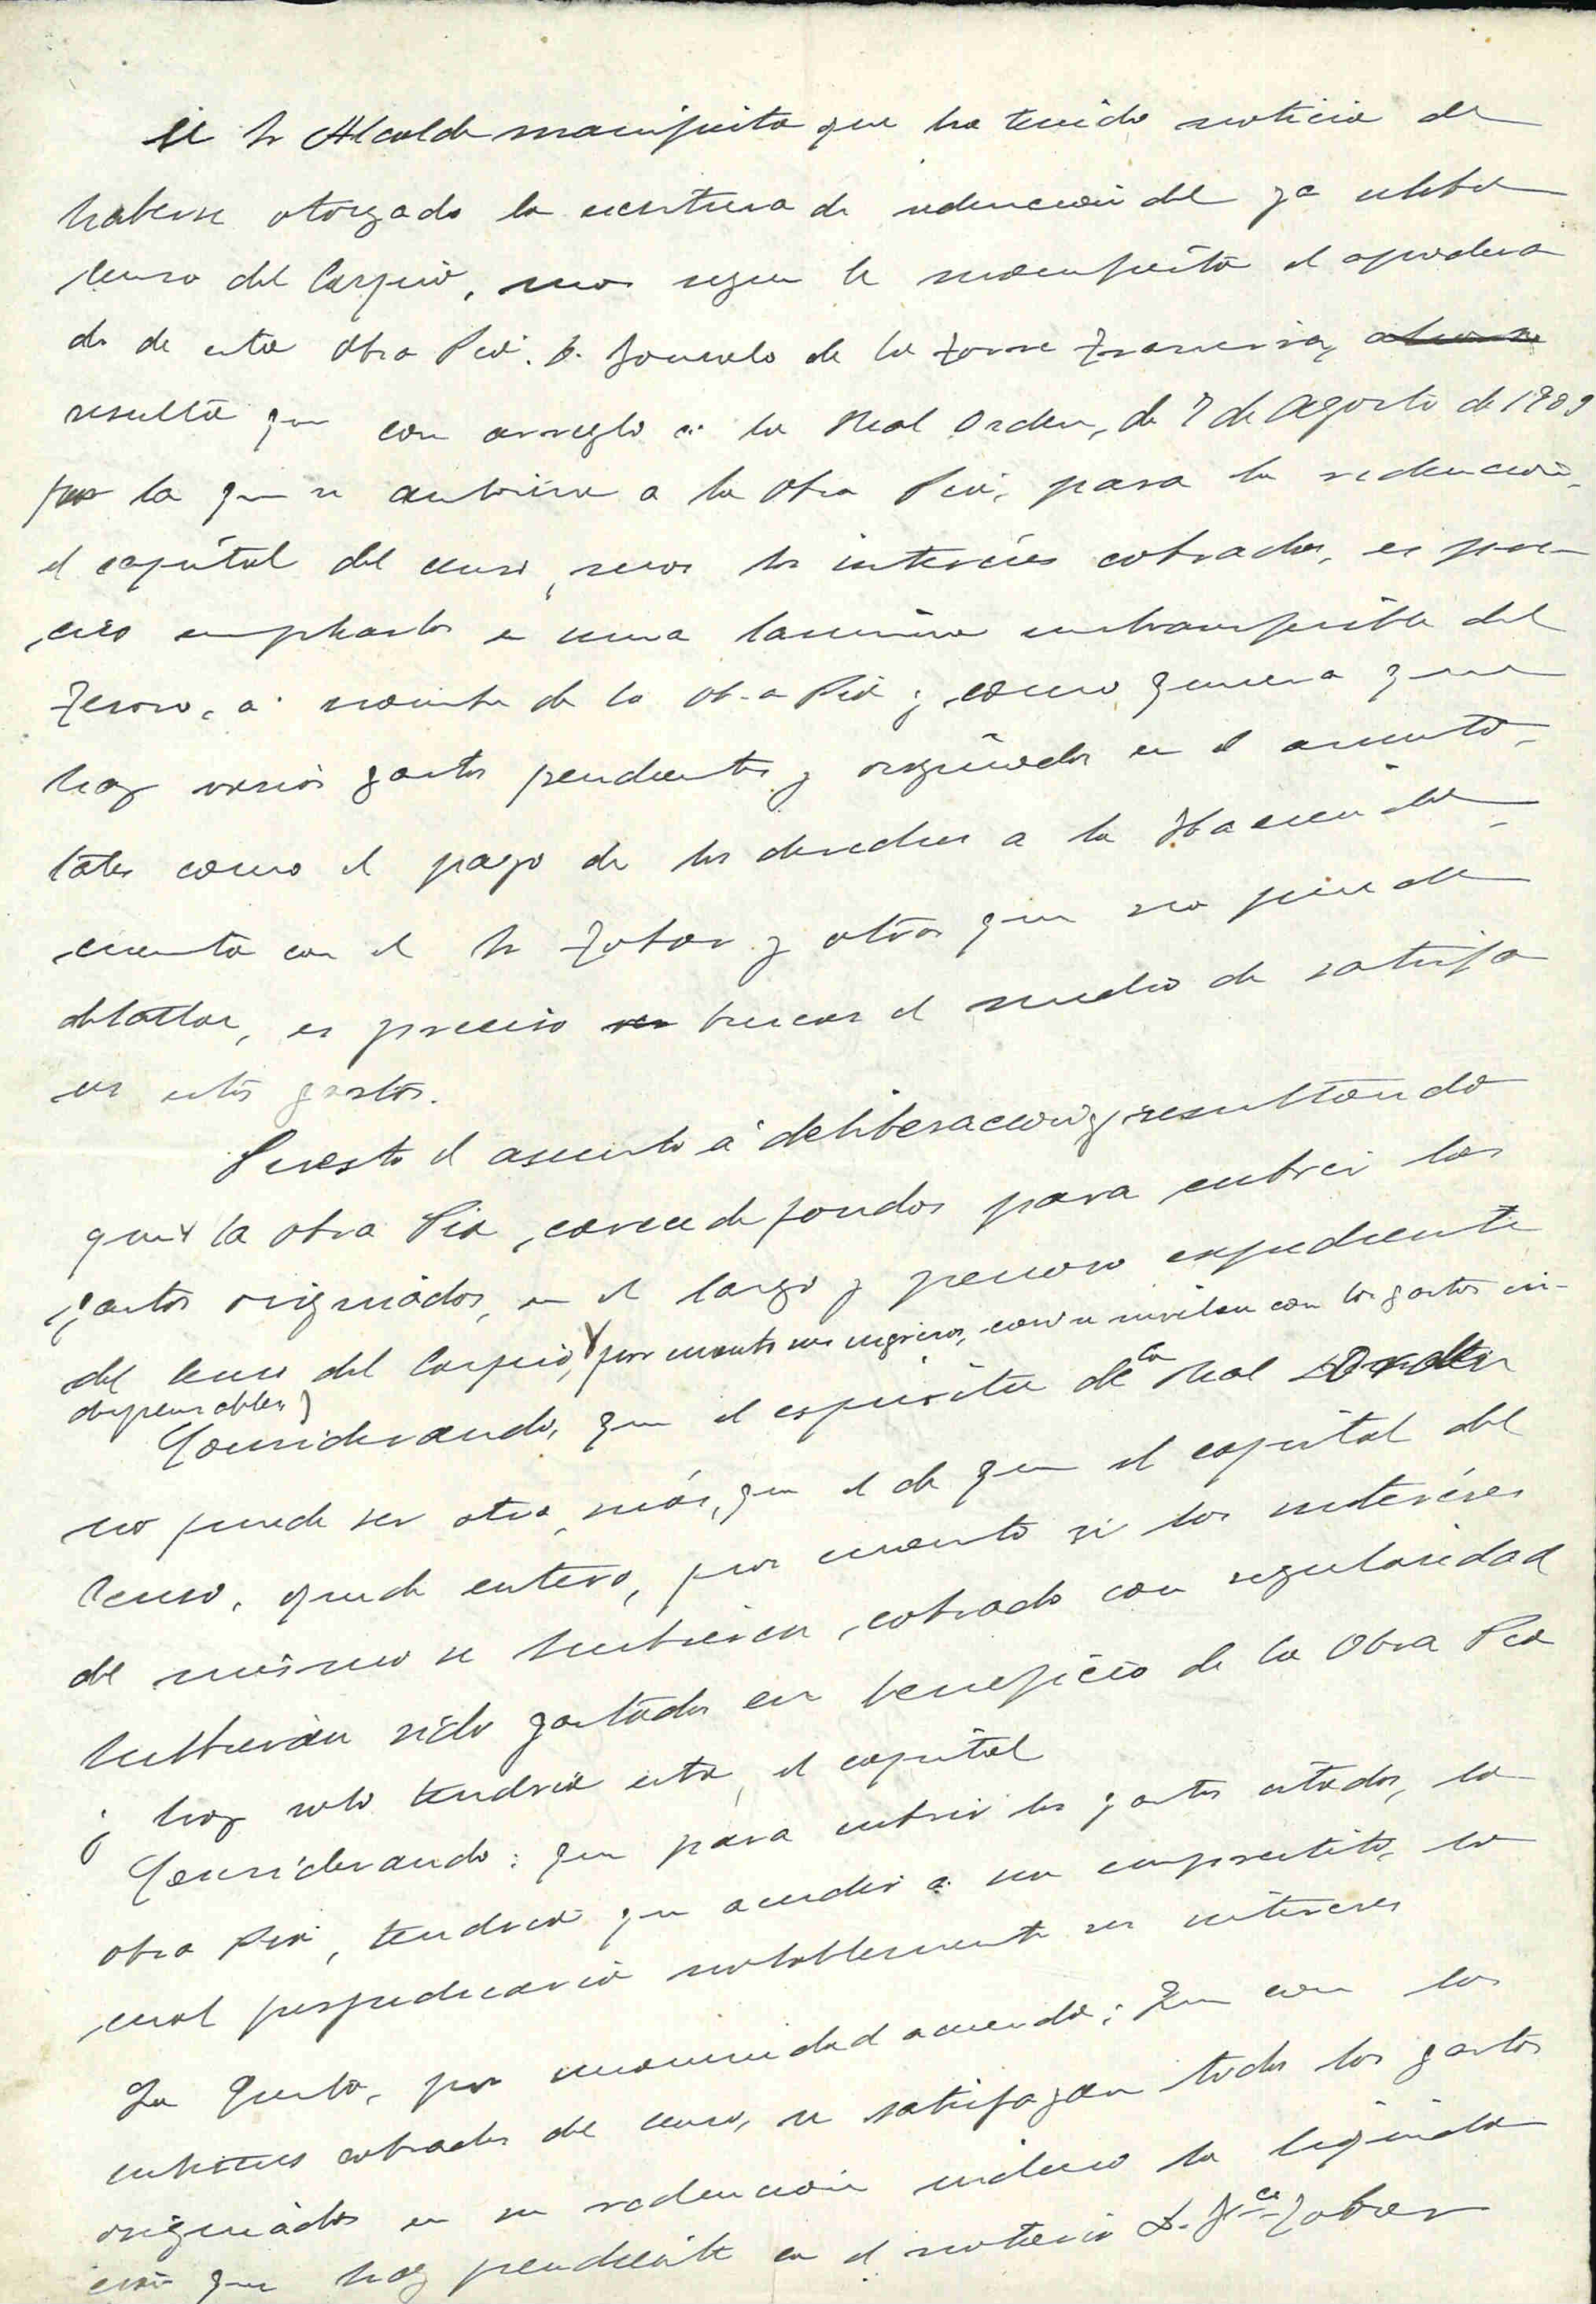 El Sr Alcalde manifiesta que ha tenido noticia de
haberse otorgado la escritura de redención del ya célebre
censo del Carpio, mas segun le manifiesta el apodera
do de esta Obra Pía. D. Gonzalo de la Torre
resulta que con arreglo a la Real Orden, de 7 de Agosto de 1909
por la que se autoriza a la Obra Pía, para la redención,
el capital del censo, mas los interéses cobrados, es pre-
ciso emplearlos en una lamina intransferible del
Tesoro, a nombre de la Obra Pía; y como quiera que
hay varios gastos pendientes y originados en el asunto,
tales como el pago de los derechos a la Hacienda,
cuenta con el Sr Tobar y otros que no puede
detallar, es preciso buscar el medio de satisfa
cer estos gastos.
Puesto el asunto á deliberacion y resultando
que la Obra Pía, carece de fondos para cubrir los
gastos originados, en el largo y penoso expediente
del censo del Carpio, por cuanto sus ingresos, casi se nivelan con los gastos in-
dispensables,
Considerando, que el espiritu de la Real Orden
no puede ser otro, más, que el de que el capital del
Censo, quede entero, por cuanto si los interéses
del mismo se hubieran, cobrado con regularidad
hubieran sido gastados en beneficio de la Obra Pía
y hoy solo tendria esta, el capital
Considerando: que para cubrir los gastos citados, la
Obra Pía, tendria que acudir a un emprestito, lo
cual perjudicaria notablemente sus intereses
La Junta, por unanimidad acuerda: Que con los
intereses cobrados del censo, se satisfagan todos los gastos
originados en su redencion incluso la liquida
ción que hay pendiente con el notario D. Fco Tobar